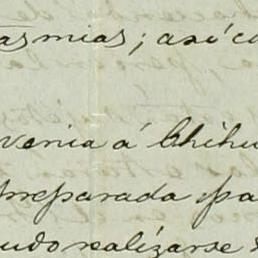 as mias; así c
venia á Chihu
preparada pa
udo realizarse